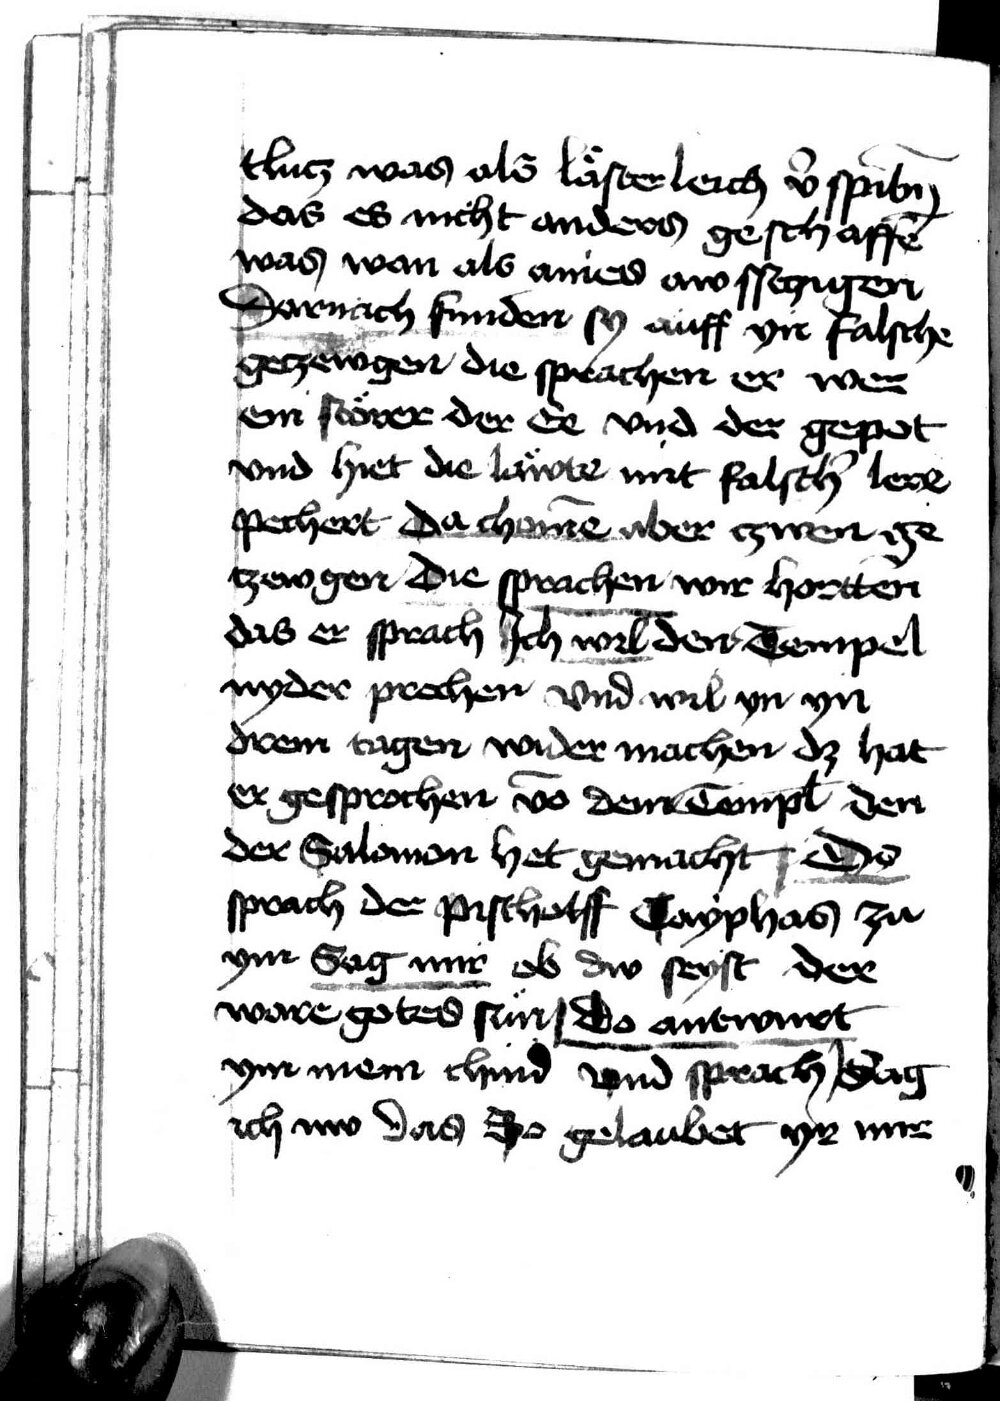 tlutz was als lästerleich v̄ spibn̄
das es nicht anders geschaffē
was wan als aines awssetzigen
Darnach funden sy auff yn falsche
getzewgen die sprachen er wer
ein störer der Ee vnd der gepot
vnd hiet die läwte mit falsch̄ lere
pechert Da chom̄e aber tzwen ge
tzewgen Die sprachen wir hortten
das er sprach Ich wil den Tempel
nyder prechen vnd wil yn yn
drein tagen wider machen dz hat
er gesprochen vō dem Templ den
der Salomon het gemacht Do
sprach der pischolff Cayphas zu
ym Sag mir ob dw seyst der
ware gotes sün Do antwurt
ym mein chind vnd sprach Sag
ich ew das So gelaubet yr mir